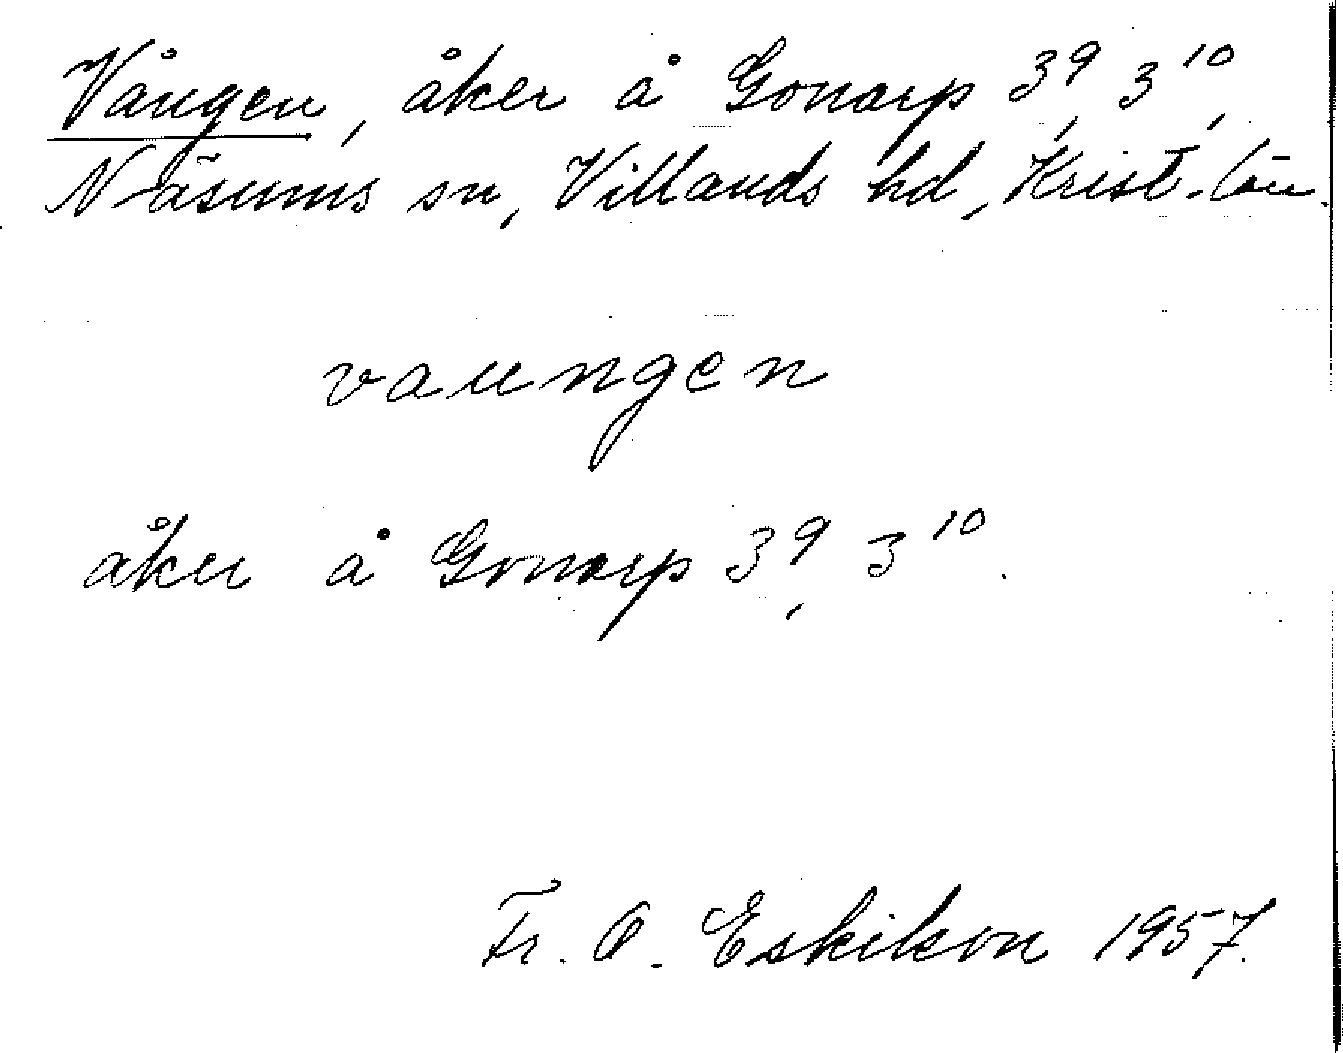 Vången, åker å Gonarp 3⁹, 3¹⁰,
Näsums sn, Villands hd, Krist. län.
vaungen
åker å Gonarp 3⁹, 3¹⁰.
Fr. O. Eskilson 1957.